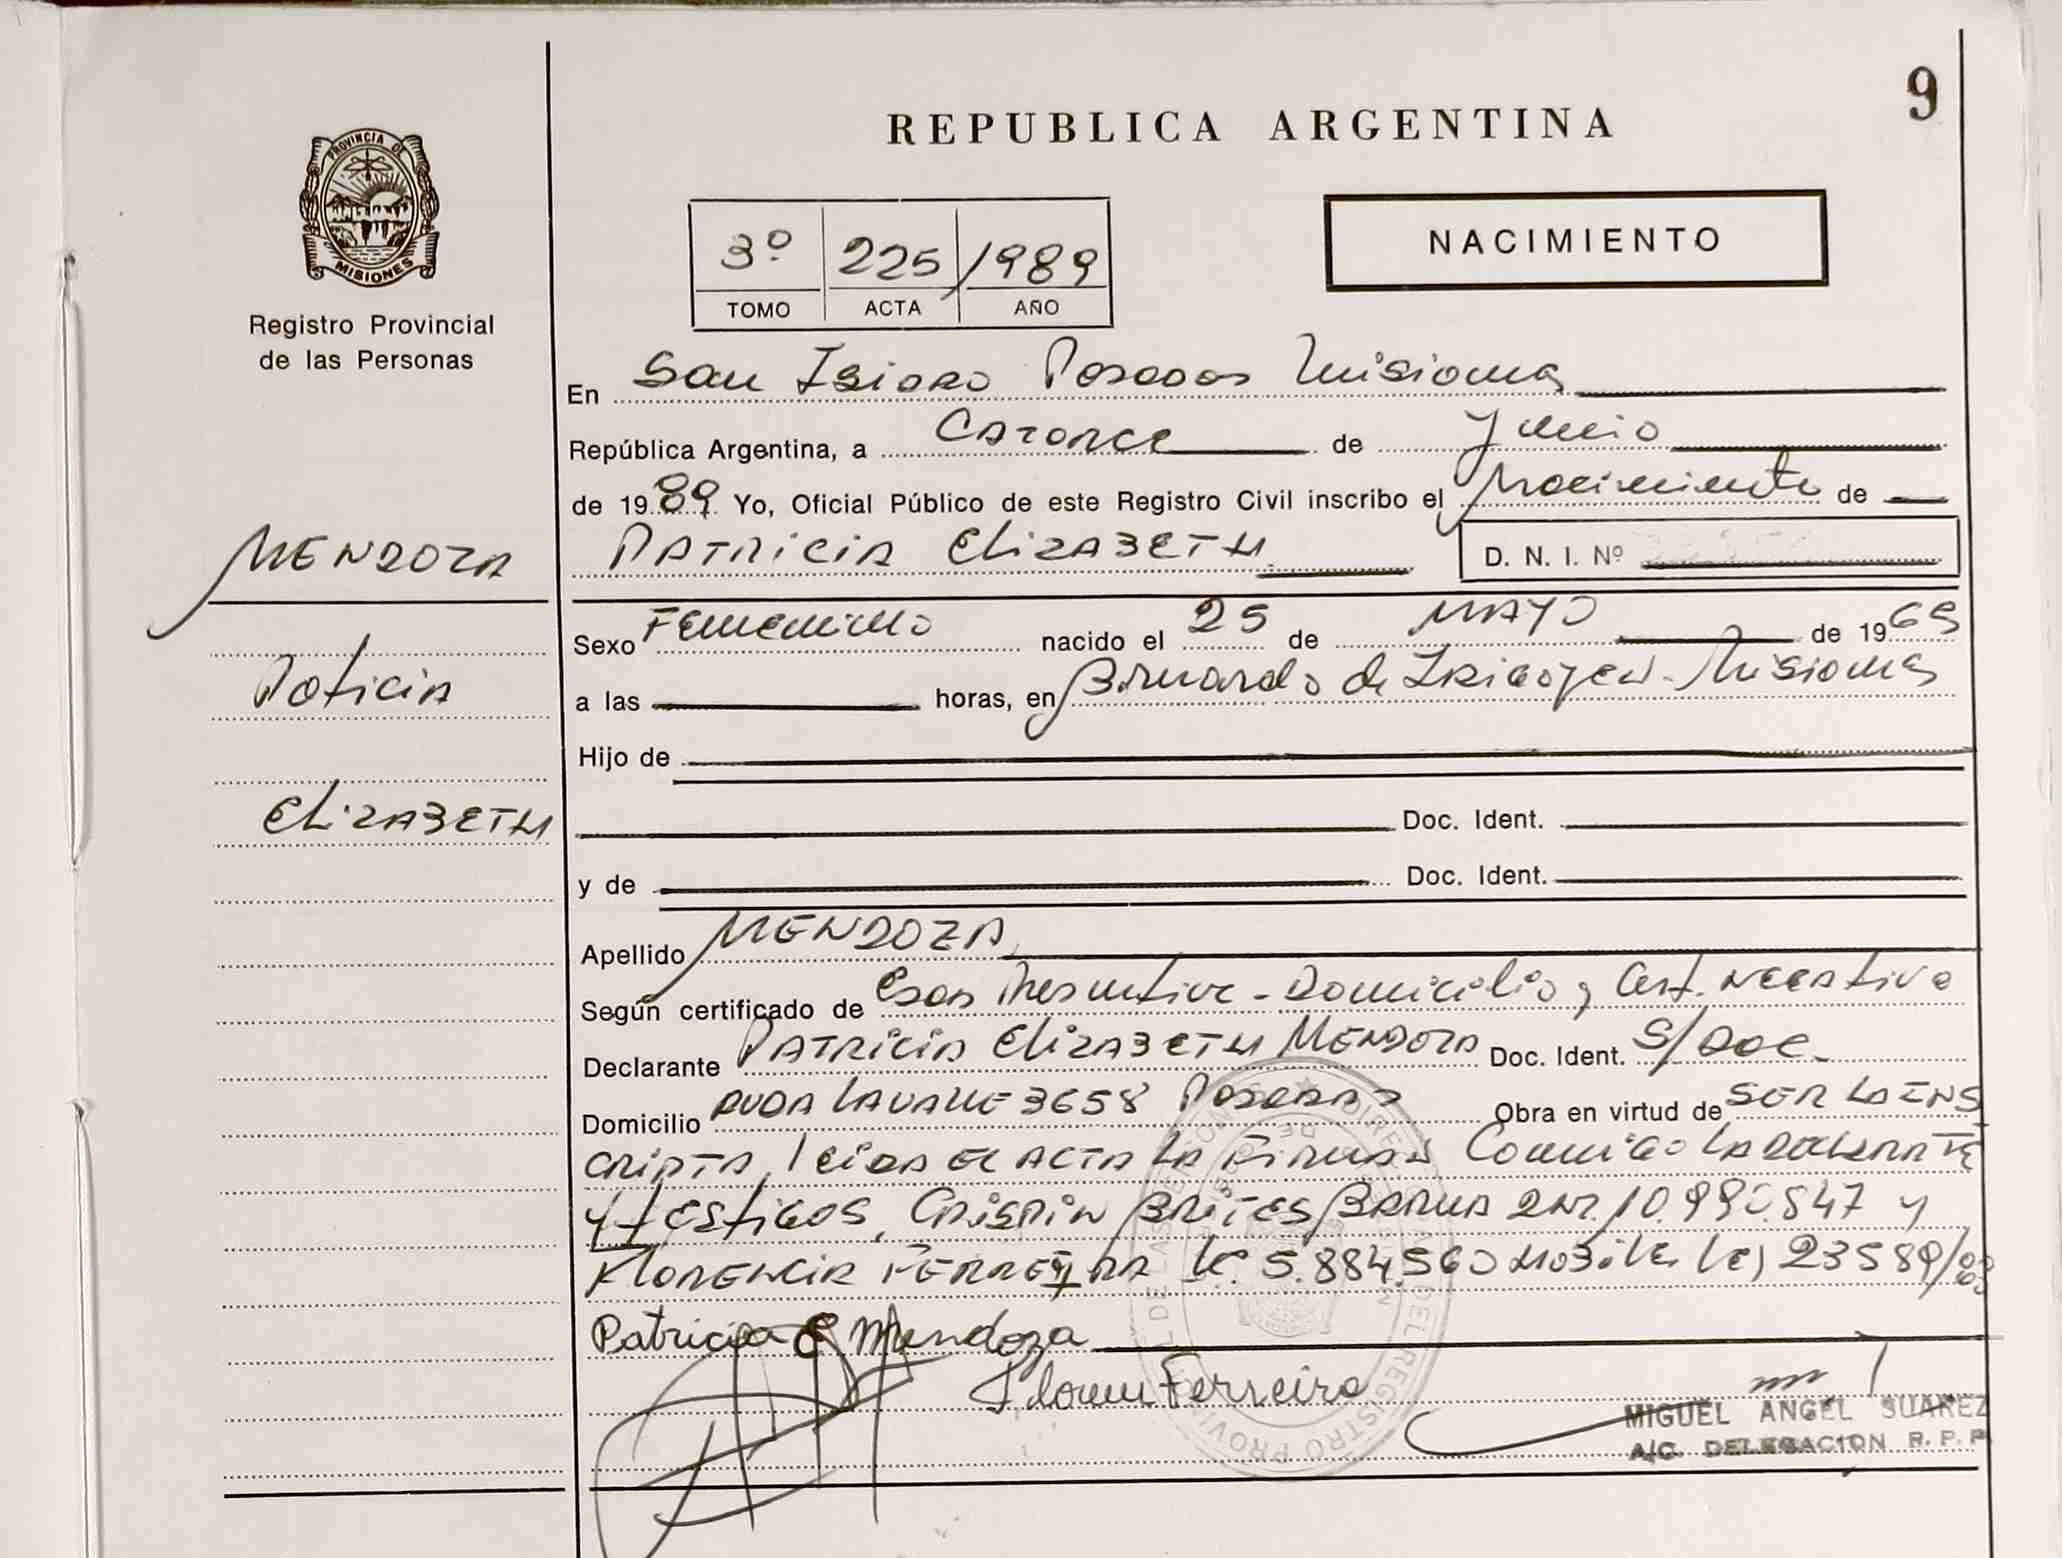 9
REPUBLICA ARGENTINA
PROVINCIA DE
MISIONES
Registro Provincial
de las Personas
3º 225/1989
TOMO ACTA AÑO
NACIMIENTO
En San Isidro Posadas Misiones
República Argentina, a Catorce de Junio
de 1989 Yo, Oficial Público de este Registro Civil inscribo el Nacimiento de
PATRICIA ELIZABETH
D. N. I. Nº
MENDOZA
Paticia
ELIZABETH
Sexo Femenino nacido el 25 de MAYO de 1969
a las horas, en Bernardo de Irigoyen - Misiones
Hijo de
Doc. Ident.
y de Doc. Ident.
Apellido MENDOZA
Según certificado de Edad Presuntiva - Domicilio y Cert. NEGATIVO
Declarante PATRICIA ELIZABETH MENDOZA Doc. Ident. S/DOC.
Domicilio AVDA LAVALLE 3658 POSADAS Obra en virtud de SER LA INS
CRIPTA, LEIDA EL ACTA LA FIRMAN Conmigo LA DECLARANTE
Y TESTIGOS, CRISPIN BRITES DNI. y
FLORENCIA FERREYRA LC. 5.884.560 23589/
Patricia E Mendoza
Ferreira
MIGUEL ANGEL SUAREZ
A/C. DELEGACION R. P. P